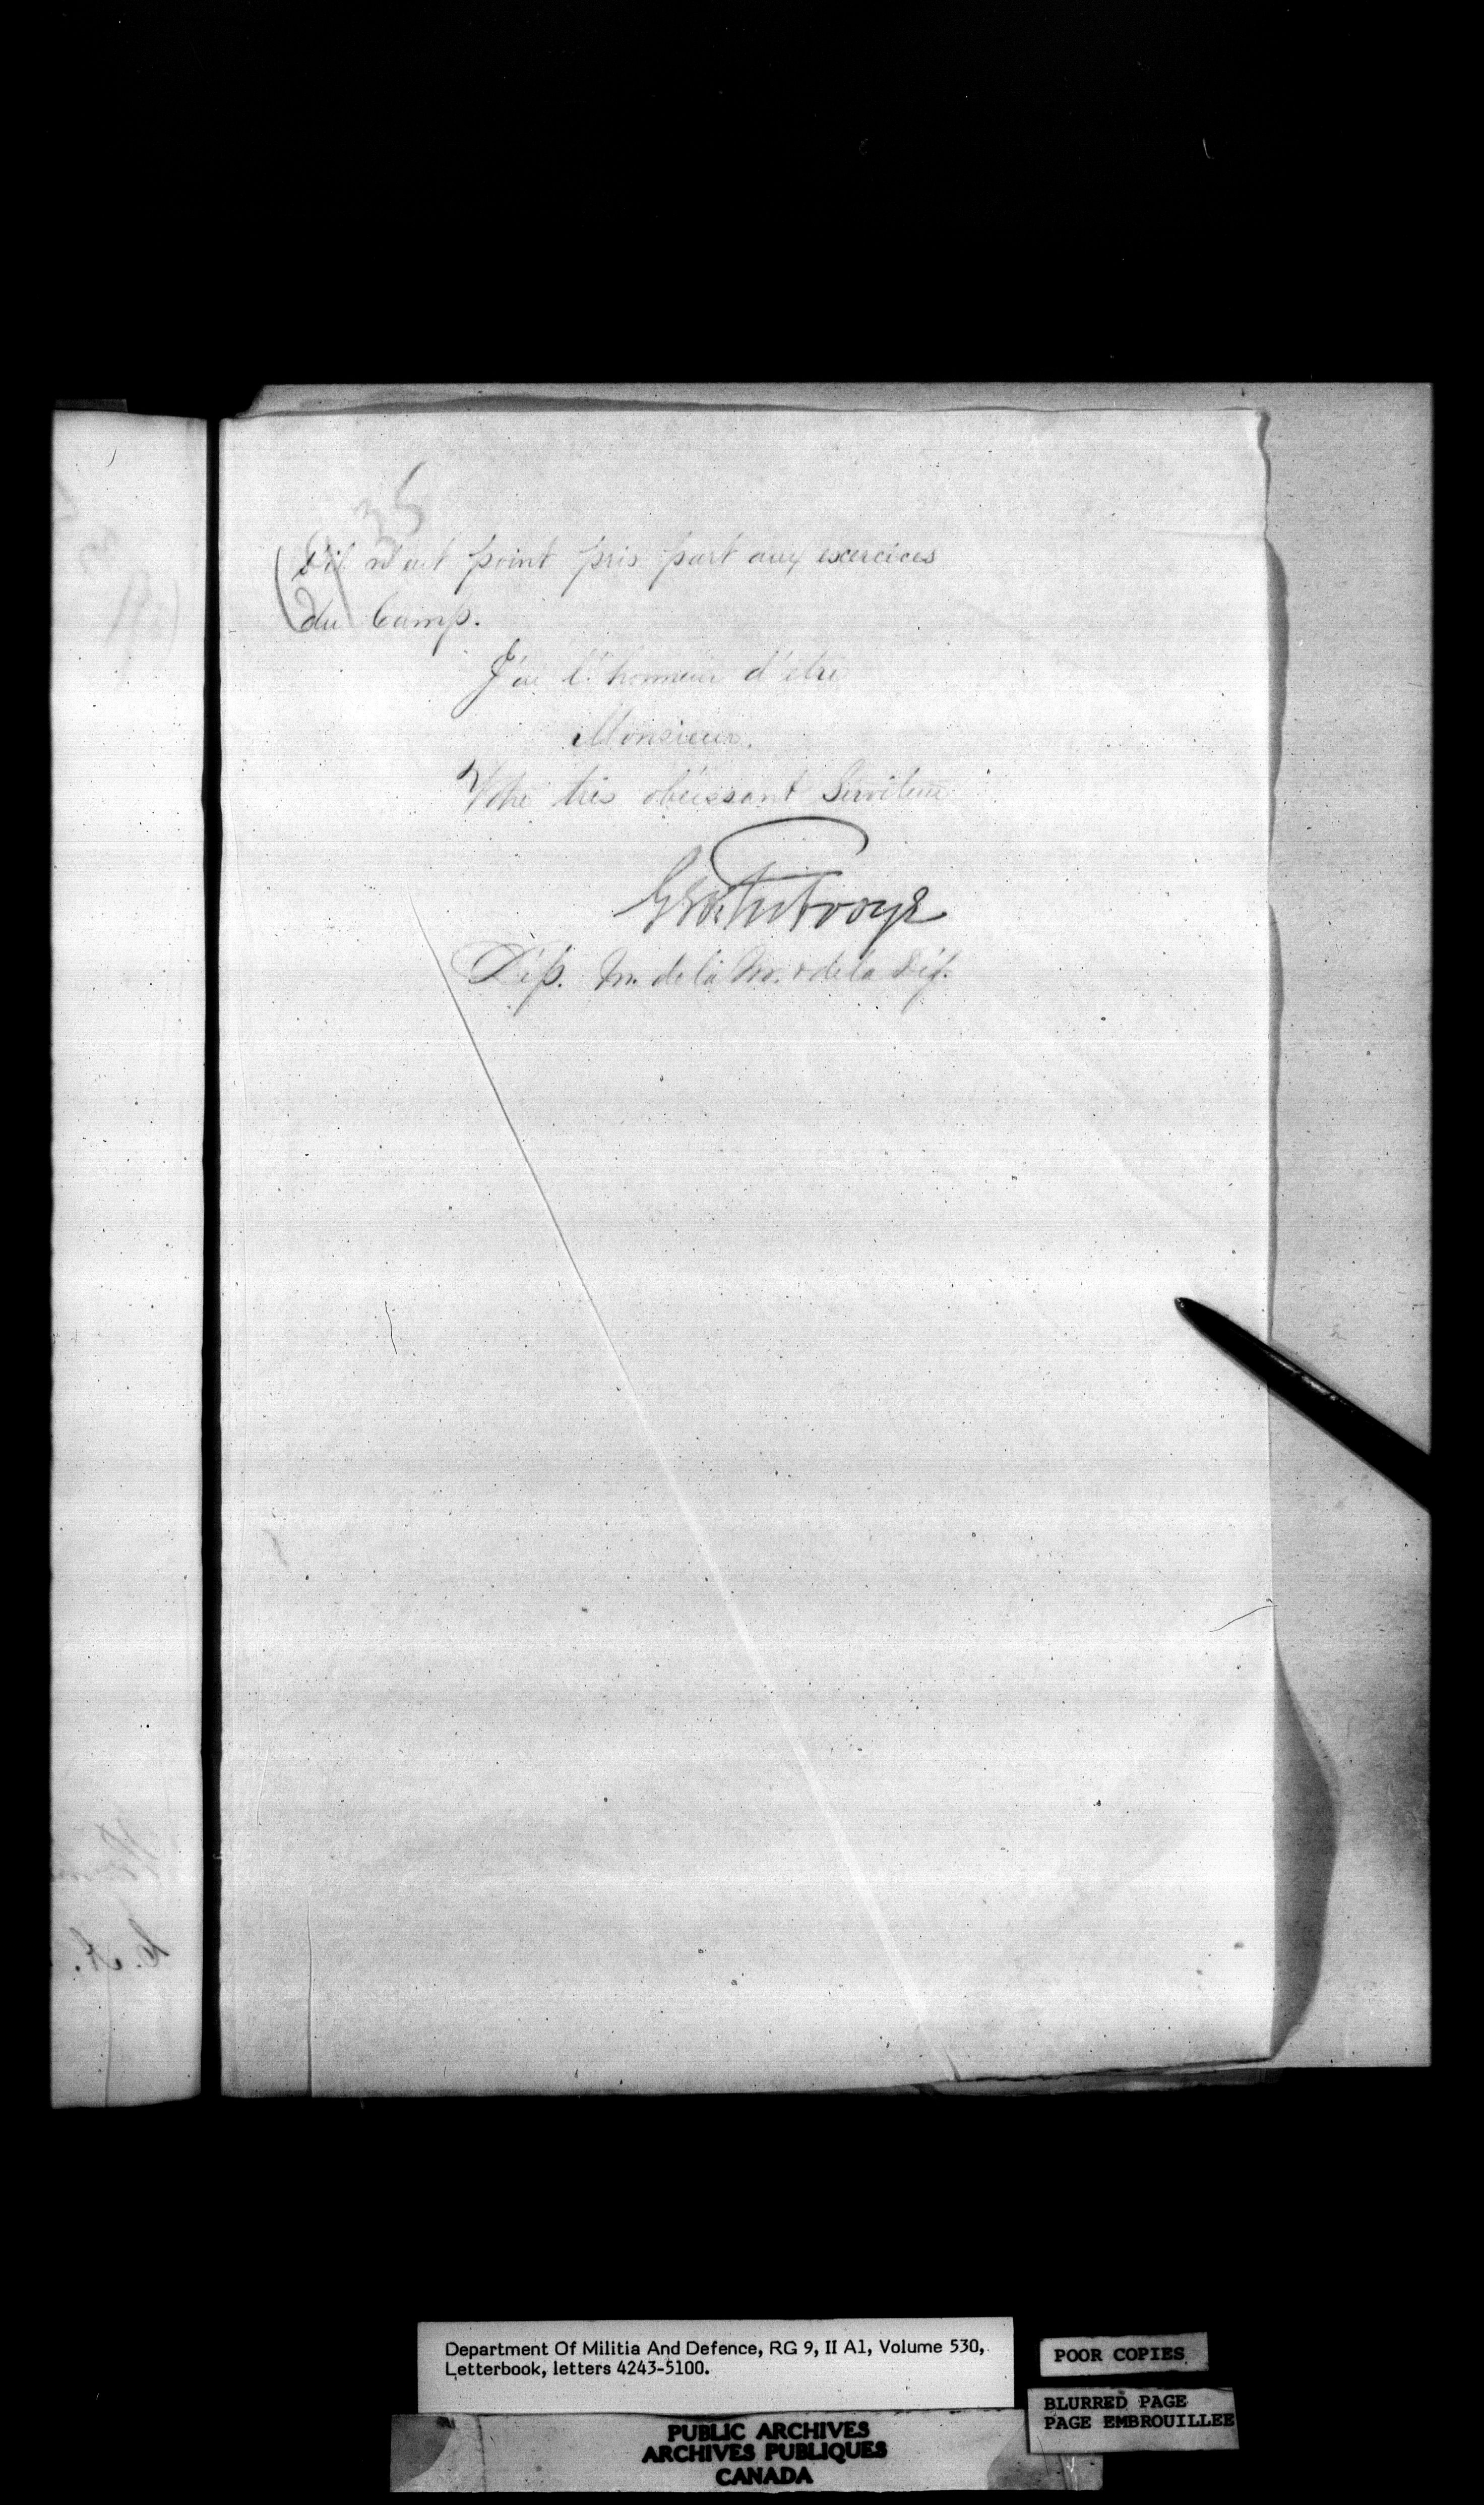 35
(2)
s'il n'eut point pris part aux exercices
du Camp.
J'ai l'honneur d'être
Monsieur,
Votre très obéissant Serviteur
Dép. M. de la M. & de la Déf.
Department Of Militia And Defence, RG 9, II A1, Volume 530,
Letterbook, letters 4243-5100.
POOR COPIES
BLURRED PAGE
PAGE EMBROUILLEE
PUBLIC ARCHIVES
ARCHIVES PUBLIQUES
CANADA